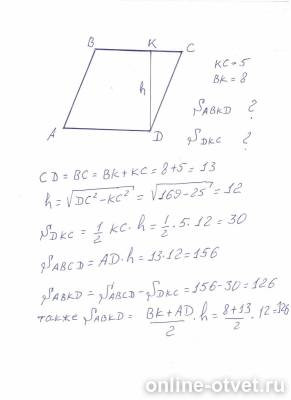 B K C
KC = 5
BK = 8
h
S ABKD ?
S DKC ?
A D
CD = BC = BK + KC = 8 + 5 = 13
h = √DC² - KC² = √169 - 25 = 12
S DKC = 1/2 KC · h = 1/2 · 5 · 12 = 30
S ABCD = AD · h = 13 · 12 = 156
S ABKD = S ABCD - S DKC = 156 - 30 = 126
также S ABKD = BK + AD/2 · h = 8 + 13/2 · 12 = 126
online-otvet.ru